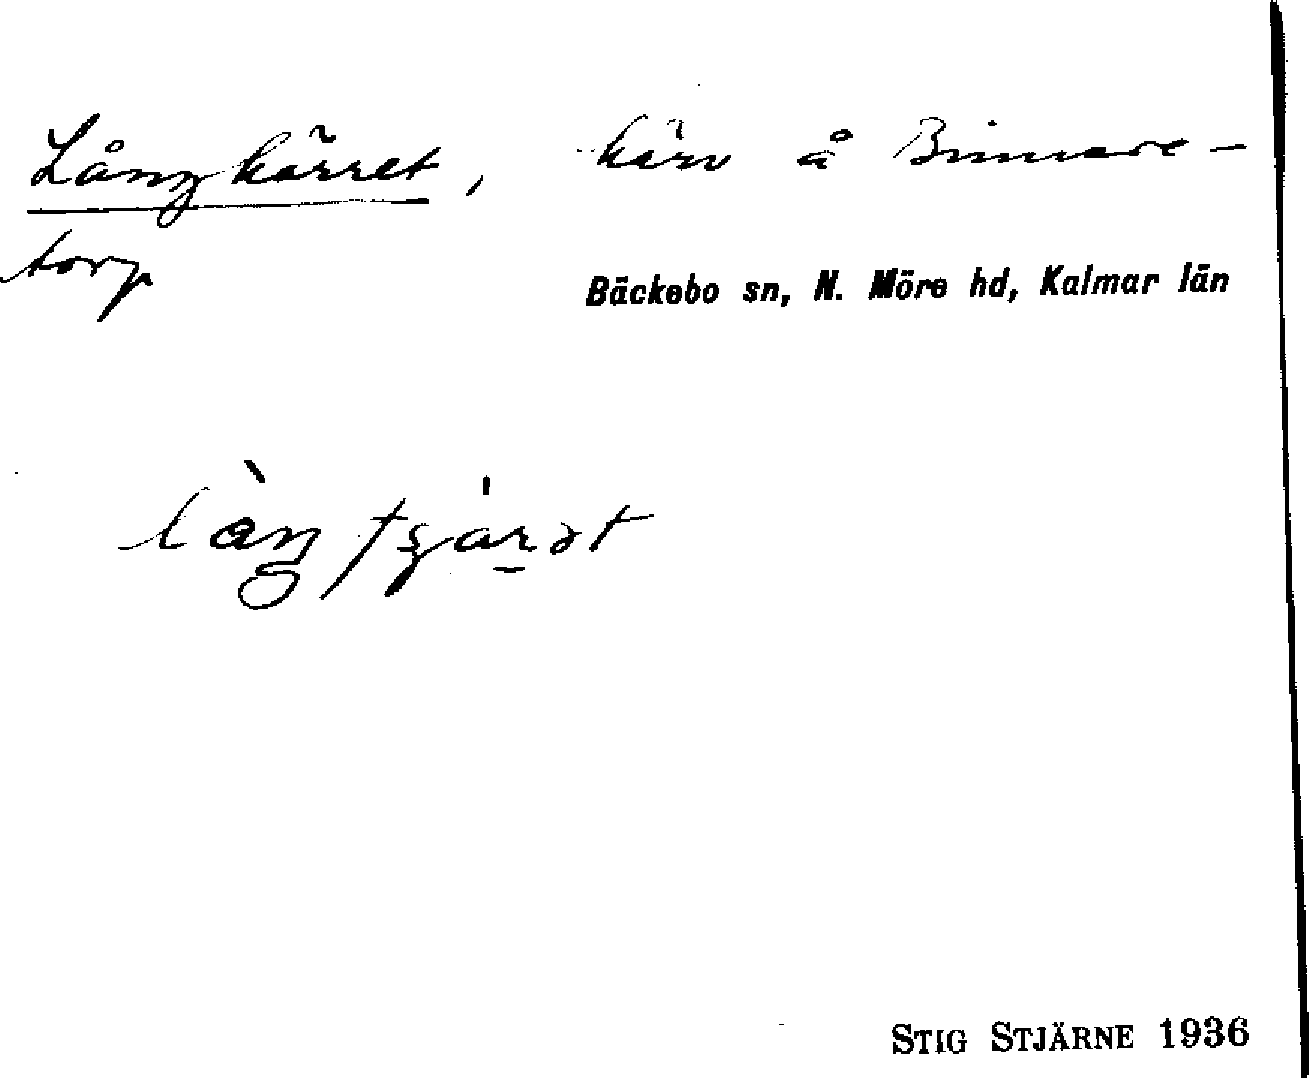 Långkärret, kärr å Binnare-
torp
Bäckebo sn, N. Möre hd, Kalmar län
STIG STJÄRNE 1936